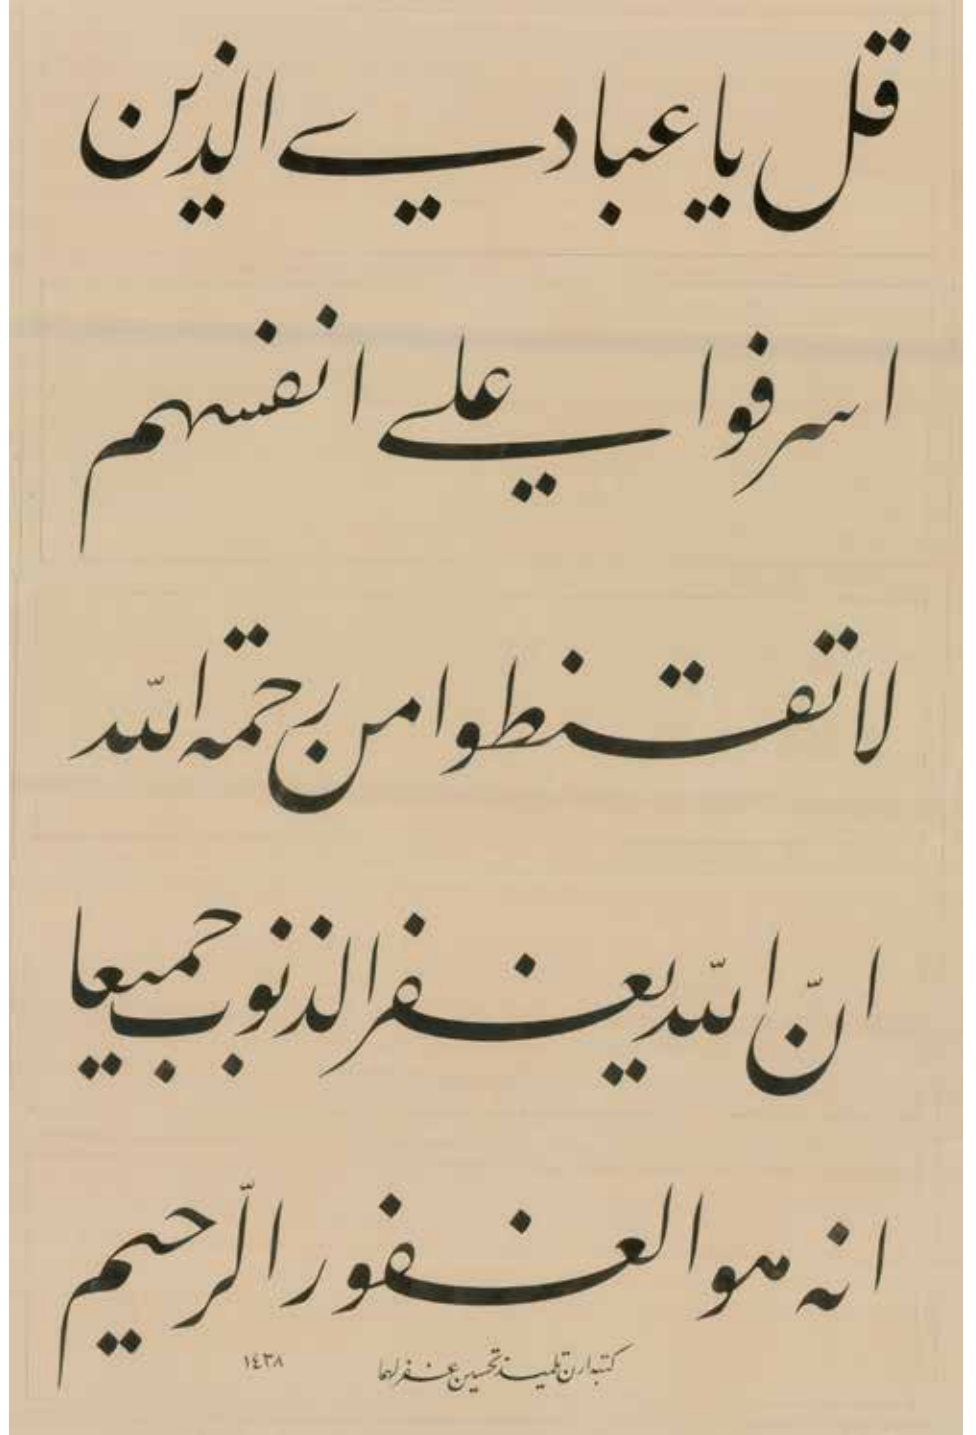 قل يا عبادي الذين
اسرفوا علي انفسهم
لا تقنطوا من رحمة الله
انّ الله يغفر الذنوب جميعا
انه هو الغفور الرّحيم
كتبه ارن تلميذ تحسين غفر لهما ١٤٣٨